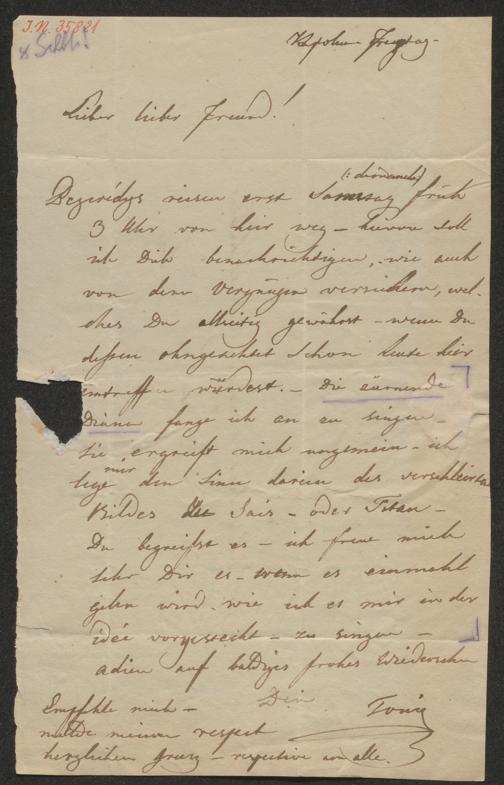 J.N. 35821
Freytag
Lieber lieber Freund!
(: dienach:)
Bezerédys reisen erst Samstag früh
3 Uhr von hier weg – hievon soll
ich Dich benachrichtigen, wie auch
von dem Vergnügen versichern, wel-
ches Du allseitig gewährst – wenn Du
dessen ohngeachtet schon heute hier
eintreffen würdest. – Die zürnende
Diana fange ich an zu singen –
sie ergreift mich ungemein – ich
lege mir den Sinn darin des verschleierten
Bildes Sais – oder Titan –
Du begreifst es – ich freue mich
sehr Dir es – wenn es einmahl
gehn wird wie ich es mir in der
idée vorgesteckt – zu singen –
adieu auf baldiges frohes Wiedersehn
Dein
Empfehle mich –
melde meinen respect
herzlichen Gruß – respective an alle.